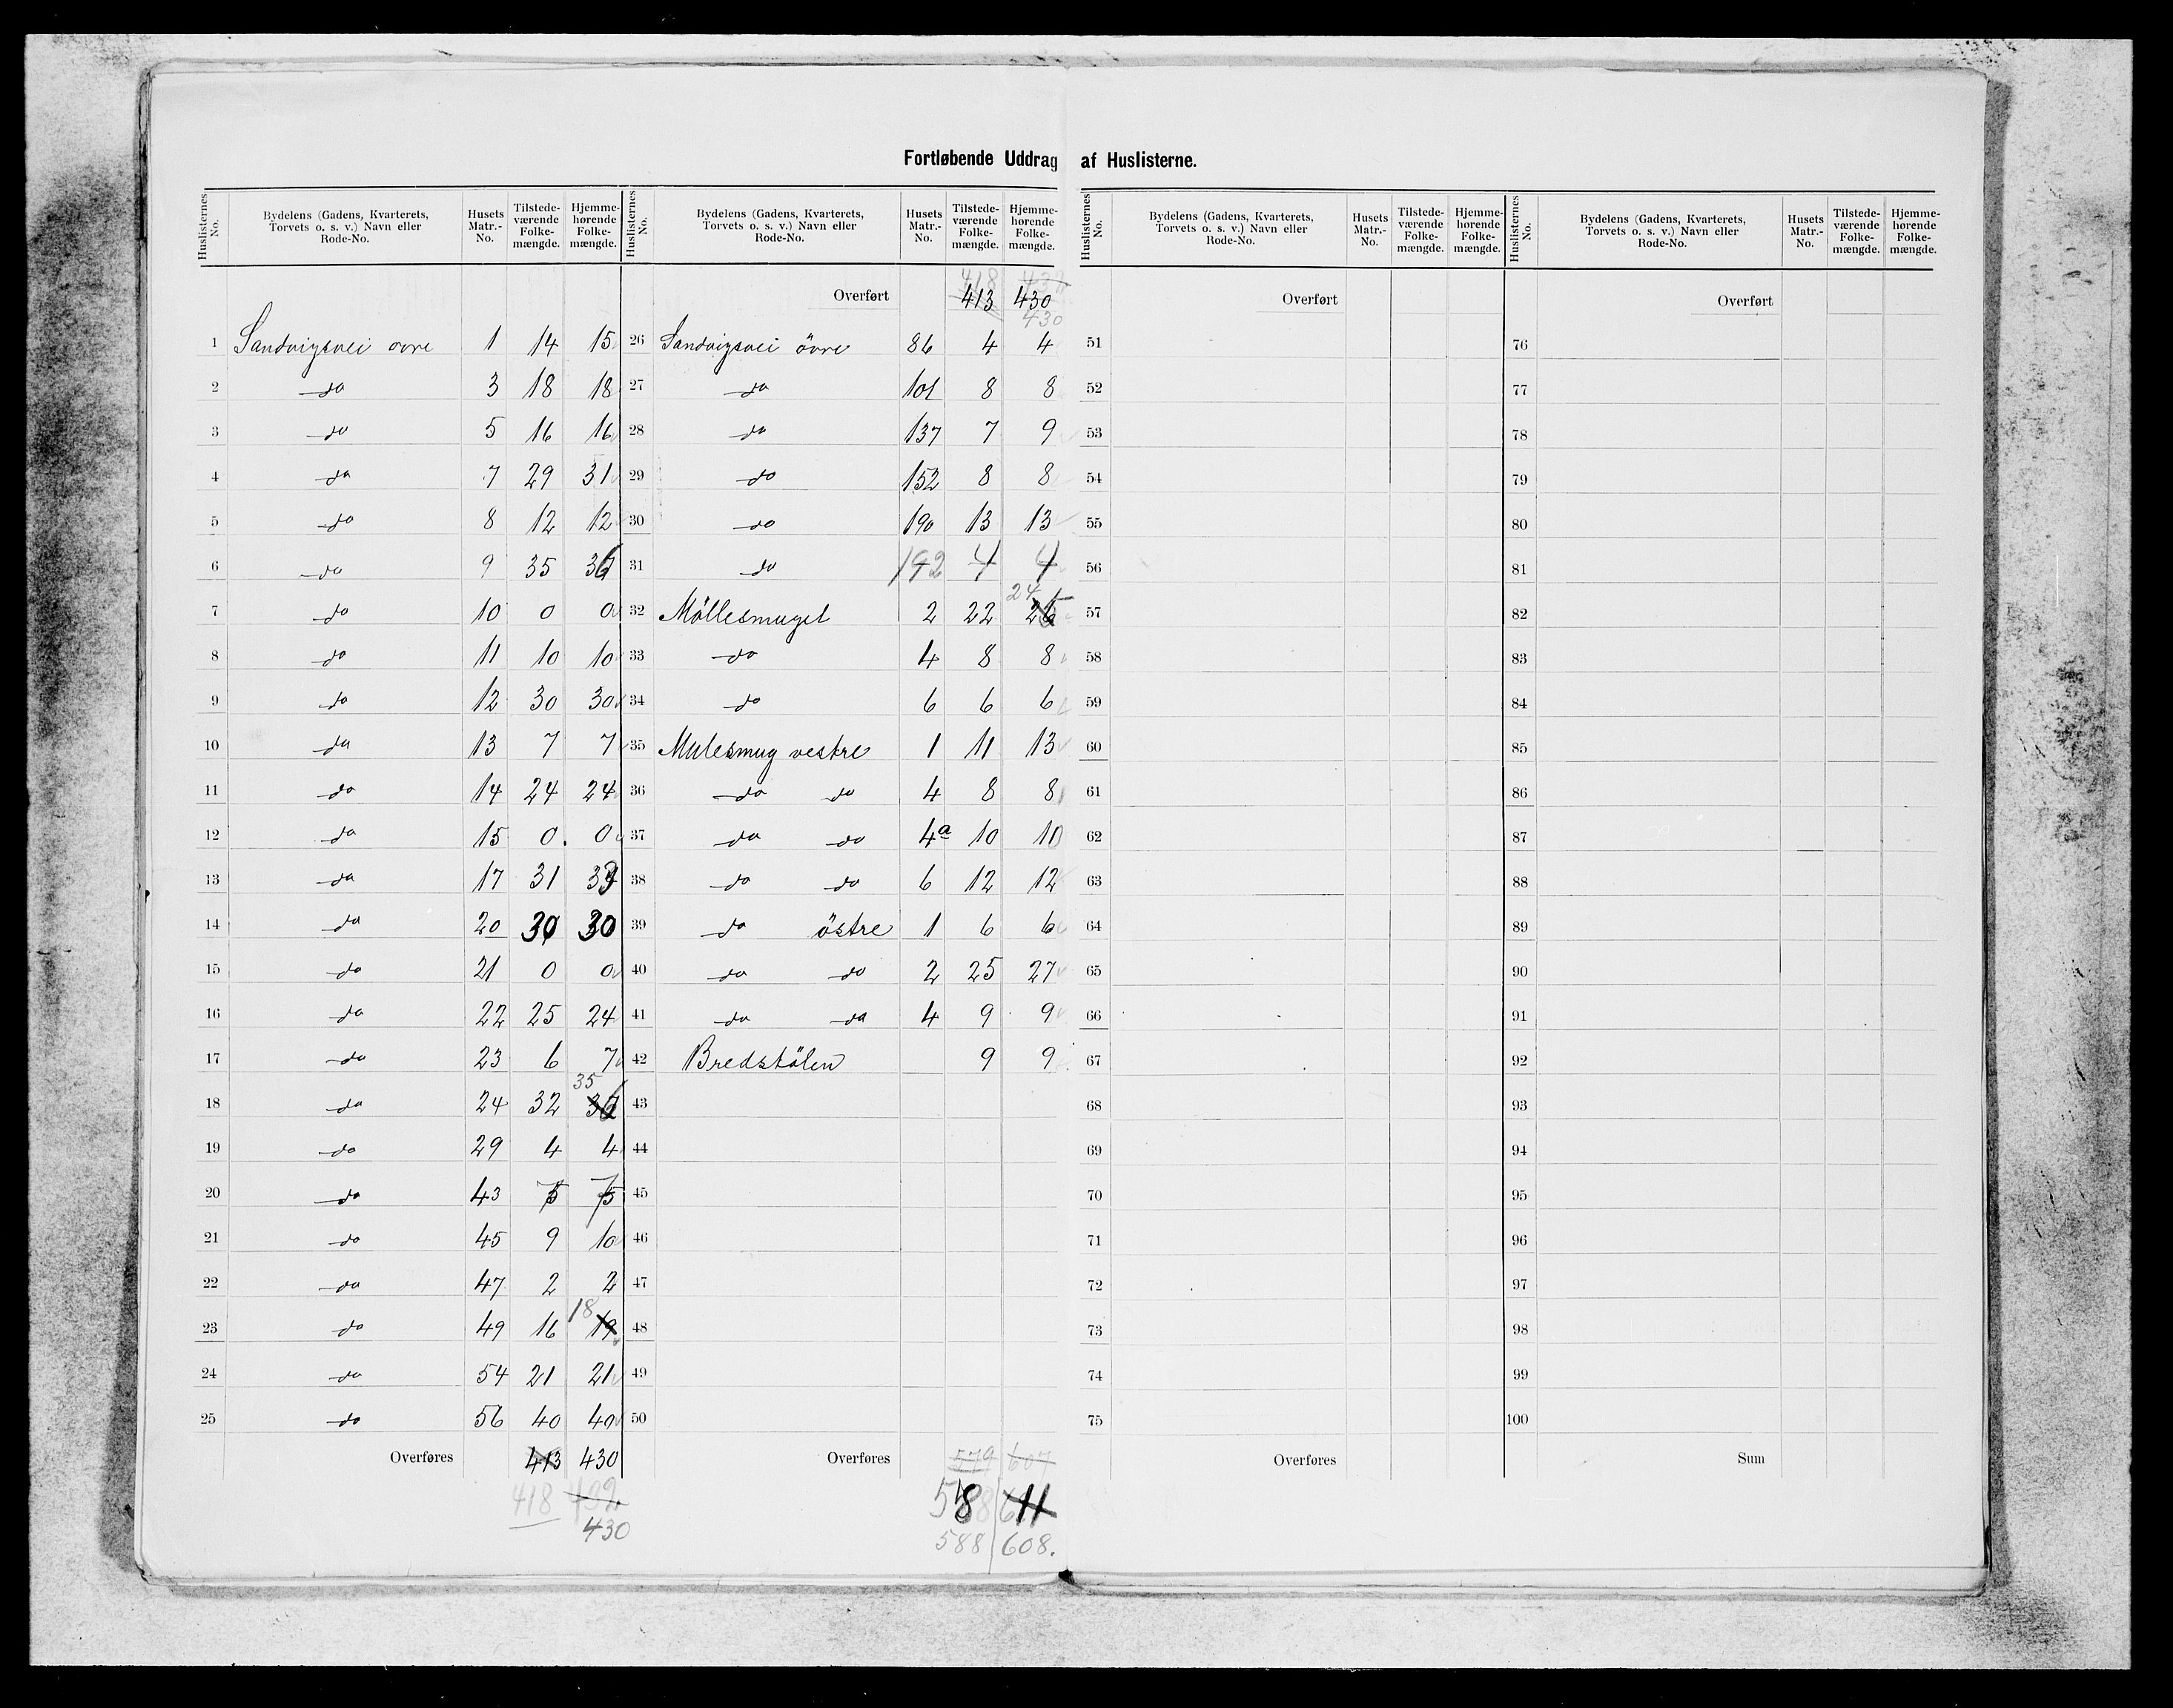 Fortløbende Uddrag af Huslisterne.
Huslisternes No. | Bydelens (Gadens, Kvarterets, Torvets o. s. v.) Navn eller Rode-No. | Husets Matr.-No. | Tilstedeværende Folkemængde. | Hjemmehørende Folkemængde.
1 Sandvigsvei övre 1 14 15
2 do 3 18 18
3 do 5 16 16
4 do 7 29 31
5 do 8 12 12
6 do 9 35 36
7 do 10 0 0
8 do 11 10 10
9 do 12 30 30
10 do 13 7 7
11 do 14 24 24
12 do 15 0. 0
13 do 17 31
14 do 20 30 30
15 do 21 0 0
16 do 22 25 24
17 do 23 6 7
18 do 24 32 36 35
19 do 29 4 4
20 do 43 7 7
21 do 45 9 10
22 do 47 2 2
23 do 49 16 19 18
24 do 54 21 21
25 do 56 40 40
Overføres 413 430
418 432
430
Huslisternes No. | Bydelens (Gadens, Kvarterets, Torvets o. s. v.) Navn eller Rode-No. | Husets Matr.-No. | Tilstedeværende Folkemængde. | Hjemmehørende Folkemængde.
418 432
Overført 413 430
430
26 Sandvigsvei övre 86 4 4
27 do 101 8 8
28 do 137 7 9
29 do 152 8 8
30 do 190 13 13
31 do 192 4 4
24
32 Möllesmuget 2 22
33 do 4 8 8
34 do 6 6 6
35 Mulesmug vestre 1 11 13
36 do do 4 8 8
37 do do 4a 10 10
38 do do 6 12 12
39 do östre 1 6 6
40 do do 2 25 27
41 do do 4 9 9
42 Bredstölen 9 9
43
44
45
46
47
48
49
50
Overføres 579 607
588 611
588 608.
Huslisternes No. | Bydelens (Gadens, Kvarterets, Torvets o. s. v.) Navn eller Rode-No. | Husets Matr.-No. | Tilstedeværende Folkemængde. | Hjemmehørende Folkemængde.
Overført
51
52
53
54
55
56
57
58
59
60
61
62
63
64
65
66
67
68
69
70
71
72
73
74
75
Overføres
Huslisternes No. | Bydelens (Gadens, Kvarterets, Torvets o. s. v.) Navn eller Rode-No. | Husets Matr.-No. | Tilstedeværende Folkemængde. | Hjemmehørende Folkemængde.
Overført
76
77
78
79
80
81
82
83
84
85
86
87
88
89
90
91
92
93
94
95
96
97
98
99
100
Sum